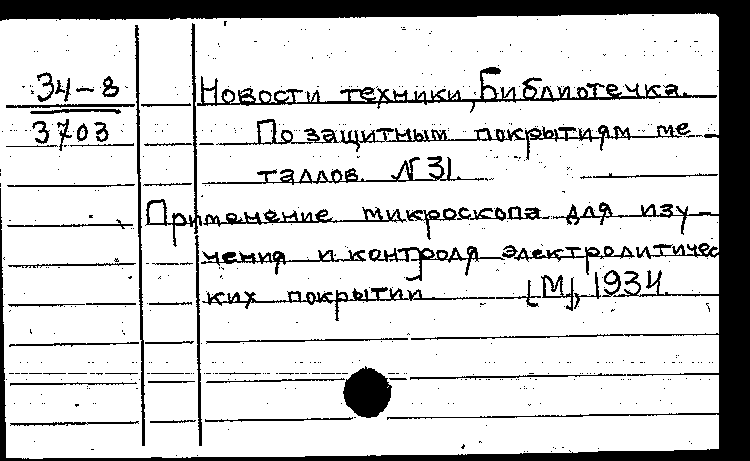 34-8
3703
Новости техники, Библиотечка.
По защитным покрытиям ме-
таллов. N 31.
Применение микроскопа для изу-
чения и контроля электролитичес
ких покрытии [М], 1934.